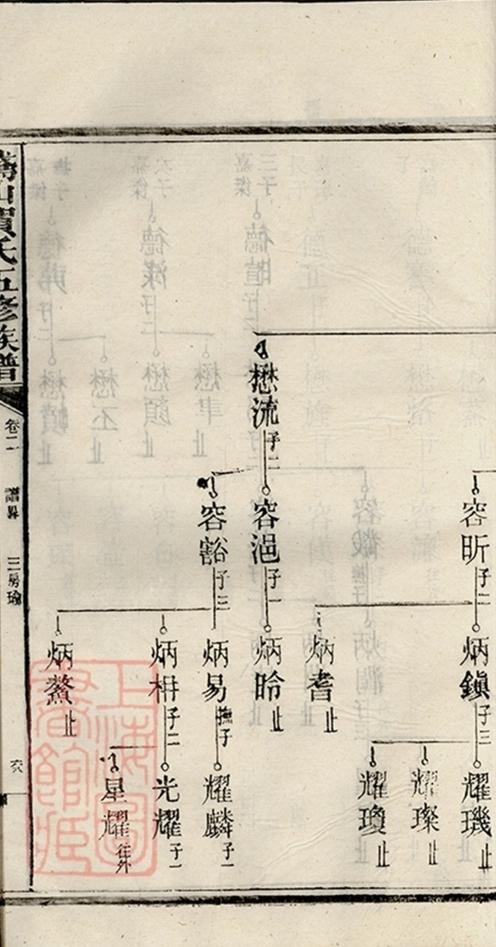 容昕子二
炳鎮子三
耀璣止
耀璨止
耀瓊止
炳耆止
懋流子二
容浥子一
炳昤止
容豁子三
炳易撫子
耀麟子一
炳枏子二
光耀子一
星耀往外
炳鰲止
賀氏五修族譜
卷二
三房瑜
上海圖書館藏